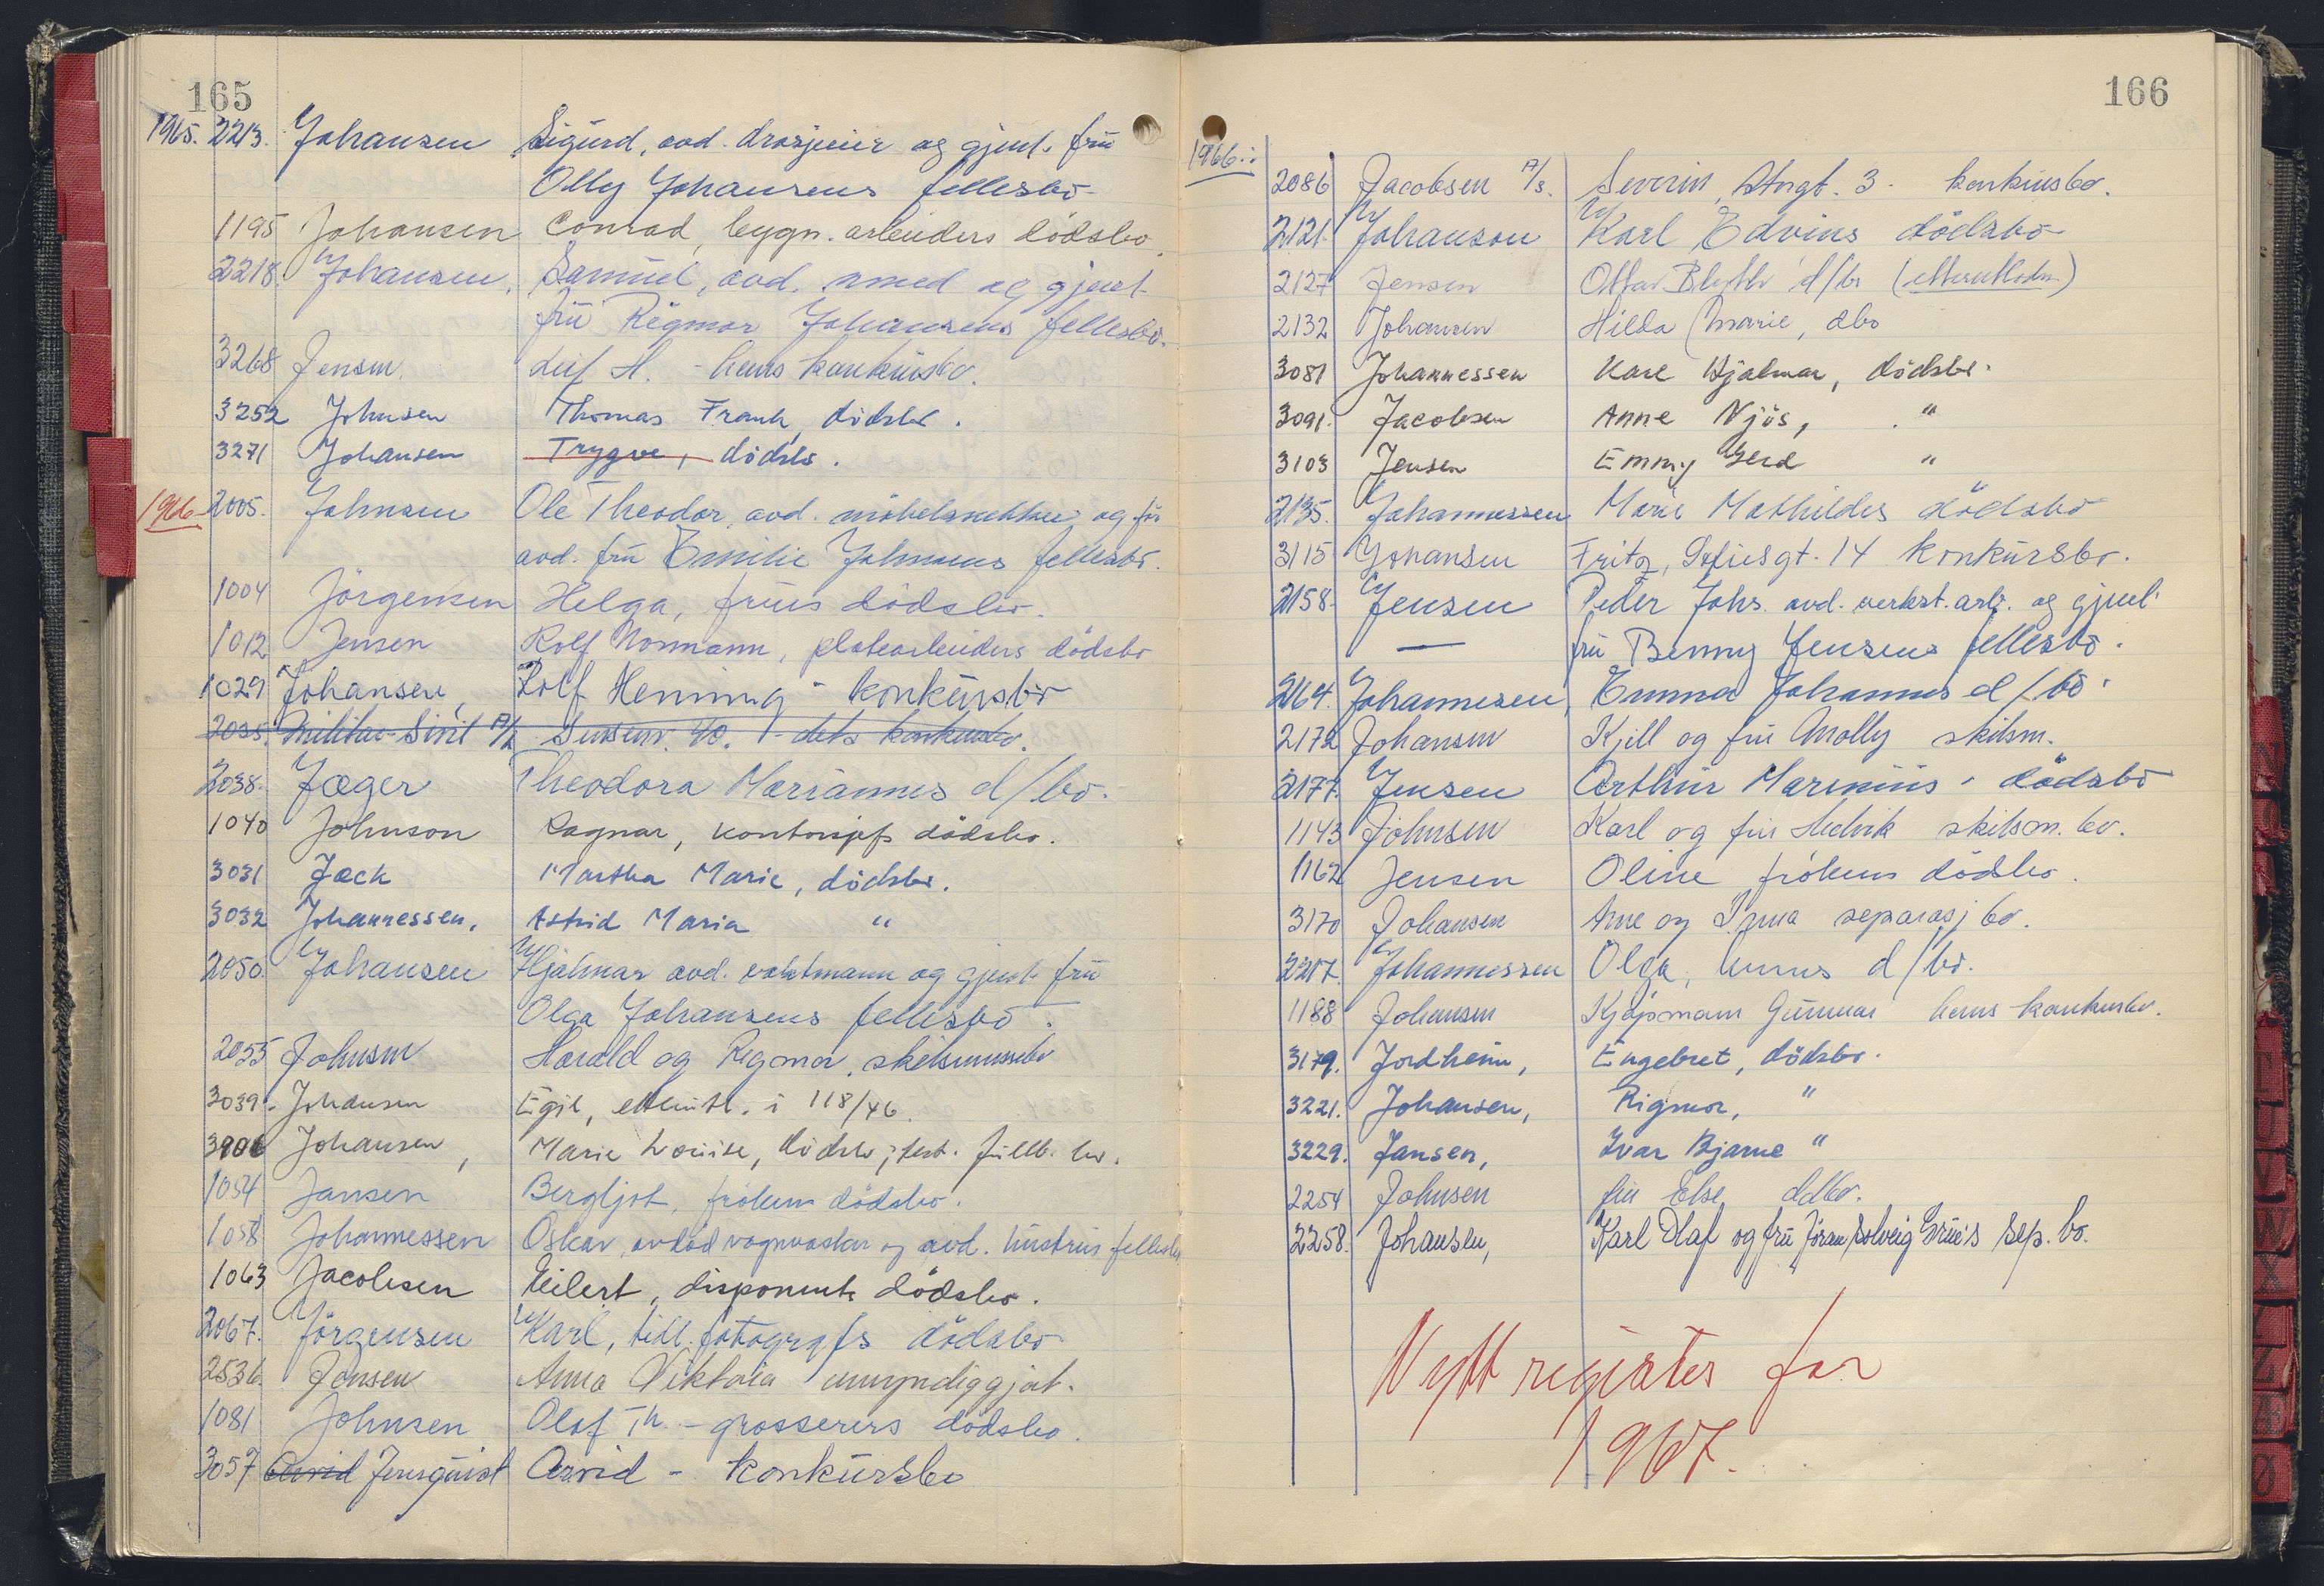 165
1965. 2213. Johansen Sigurd, avd. drosjeeier og gjenl. fru
Olly Johansens fellesbo
1195 Johansen Conrad, bygn. arbeiders dödsbo
2218. Johansen, Samuel, avd. smed og gjenl.
fru Rigmor Johansens fellesbo.
3268 Jensen Leif H. - hans konkursbo.
3252 Johnsen Thomas Frank, dödsbo.
3271 Johansen Trygve, dödsbo.
1966 2005. Johnsen Ole Theodor, avd. möbelsnekker og for
avd. fru Emilie Johnsens fellesbo.
1004 Jörgensen Helga, frues dödsbo.
1012 Jensen Rolf Normann, platearbeiders dödsbo
1029 Johansen, Rolf Henning - konkursbo
2035. Militær-Sivil A/S 40. - dets konkursbo.
2038. Jæger Theodora Mariannes d/bo.
1040 Johnson Ragnar, kontorsjefs dödsbo.
3031 Jæck Martha Marie, dödsbo.
3032 Johannessen, Astrid Maria "
2050. Johansen Hjalmar avd. vaktmann og gjenl. fru
Olga Johansens fellesbo.
2055 Johnsen Harald og Rigmor, skilsmissebo
3039. Johansen Egil, etterutl. i 118/46.
Johansen, Marie Louise, dödsbo; test. fullb. bo.
1054 Jansen Bergljot, frökens dödsbo.
1058 Johannessen Oskar, avdöd vognvasker og avd. hustrus fellesbo
1063 Jacobsen Eilert, disponents dödsbo.
2067. Jörgensen Karl, tidl. fotografs dödsbo
2536. Jensen Anna Viktoria umyndiggjort.
1081 Johnsen Olaf Th. - grosserers dödsbo.
3057 Arvid Jernquist Arvid - konkursbo
166
1966:
2086 Jacobsen A/S. Severin, Storgt. 3. konkursbo.
2121. Johanson Karl Edvins dödsbo
2127 Jensen Ottar Blyth d/bo
2132 Johansen Hilda Marie, dbo
3081 Johannessen Kare Hjalmar, dödsbo.
3091. Jacobsen Anne Njös, "
3103 Jensen Emmy Gerd "
2135. Johannessen Marie Mathildes dödsbo
3115 Johansen Fritz, Sofiesgt. 14 konkursbo.
2158. Jensen Peder Johs. avd. verkst. arb. og gjenl.
— fru Benny Jensens fellesbo.
2164. Johannesen, Emma Johannes d/bo.
2172 Johansen Kjell og fru Molly skilsm.
2177. Jensen Arthur Marinius' dödsbo
1143 Johnsen Karl og fru Hedvik skilsm. bo.
1162 Jensen Oline frökens dödsbo.
3170 Johansen Arne og Irma separasj bo.
2217. Johannessen Olga, d/bo.
1188 Johansen Kjöpmann Gunnar hans konkursbo.
3179. Jordheim, Engebret, dödsbo.
3221. Johansen, Rigmor, "
3229. Jansen, Ivar Bjarne "
2254 Johnsen fru Else ddbo.
2258. Johansen, Karl Olaf og fru Jöran Solveig Grue's sep. bo.
Nytt register for
1967.